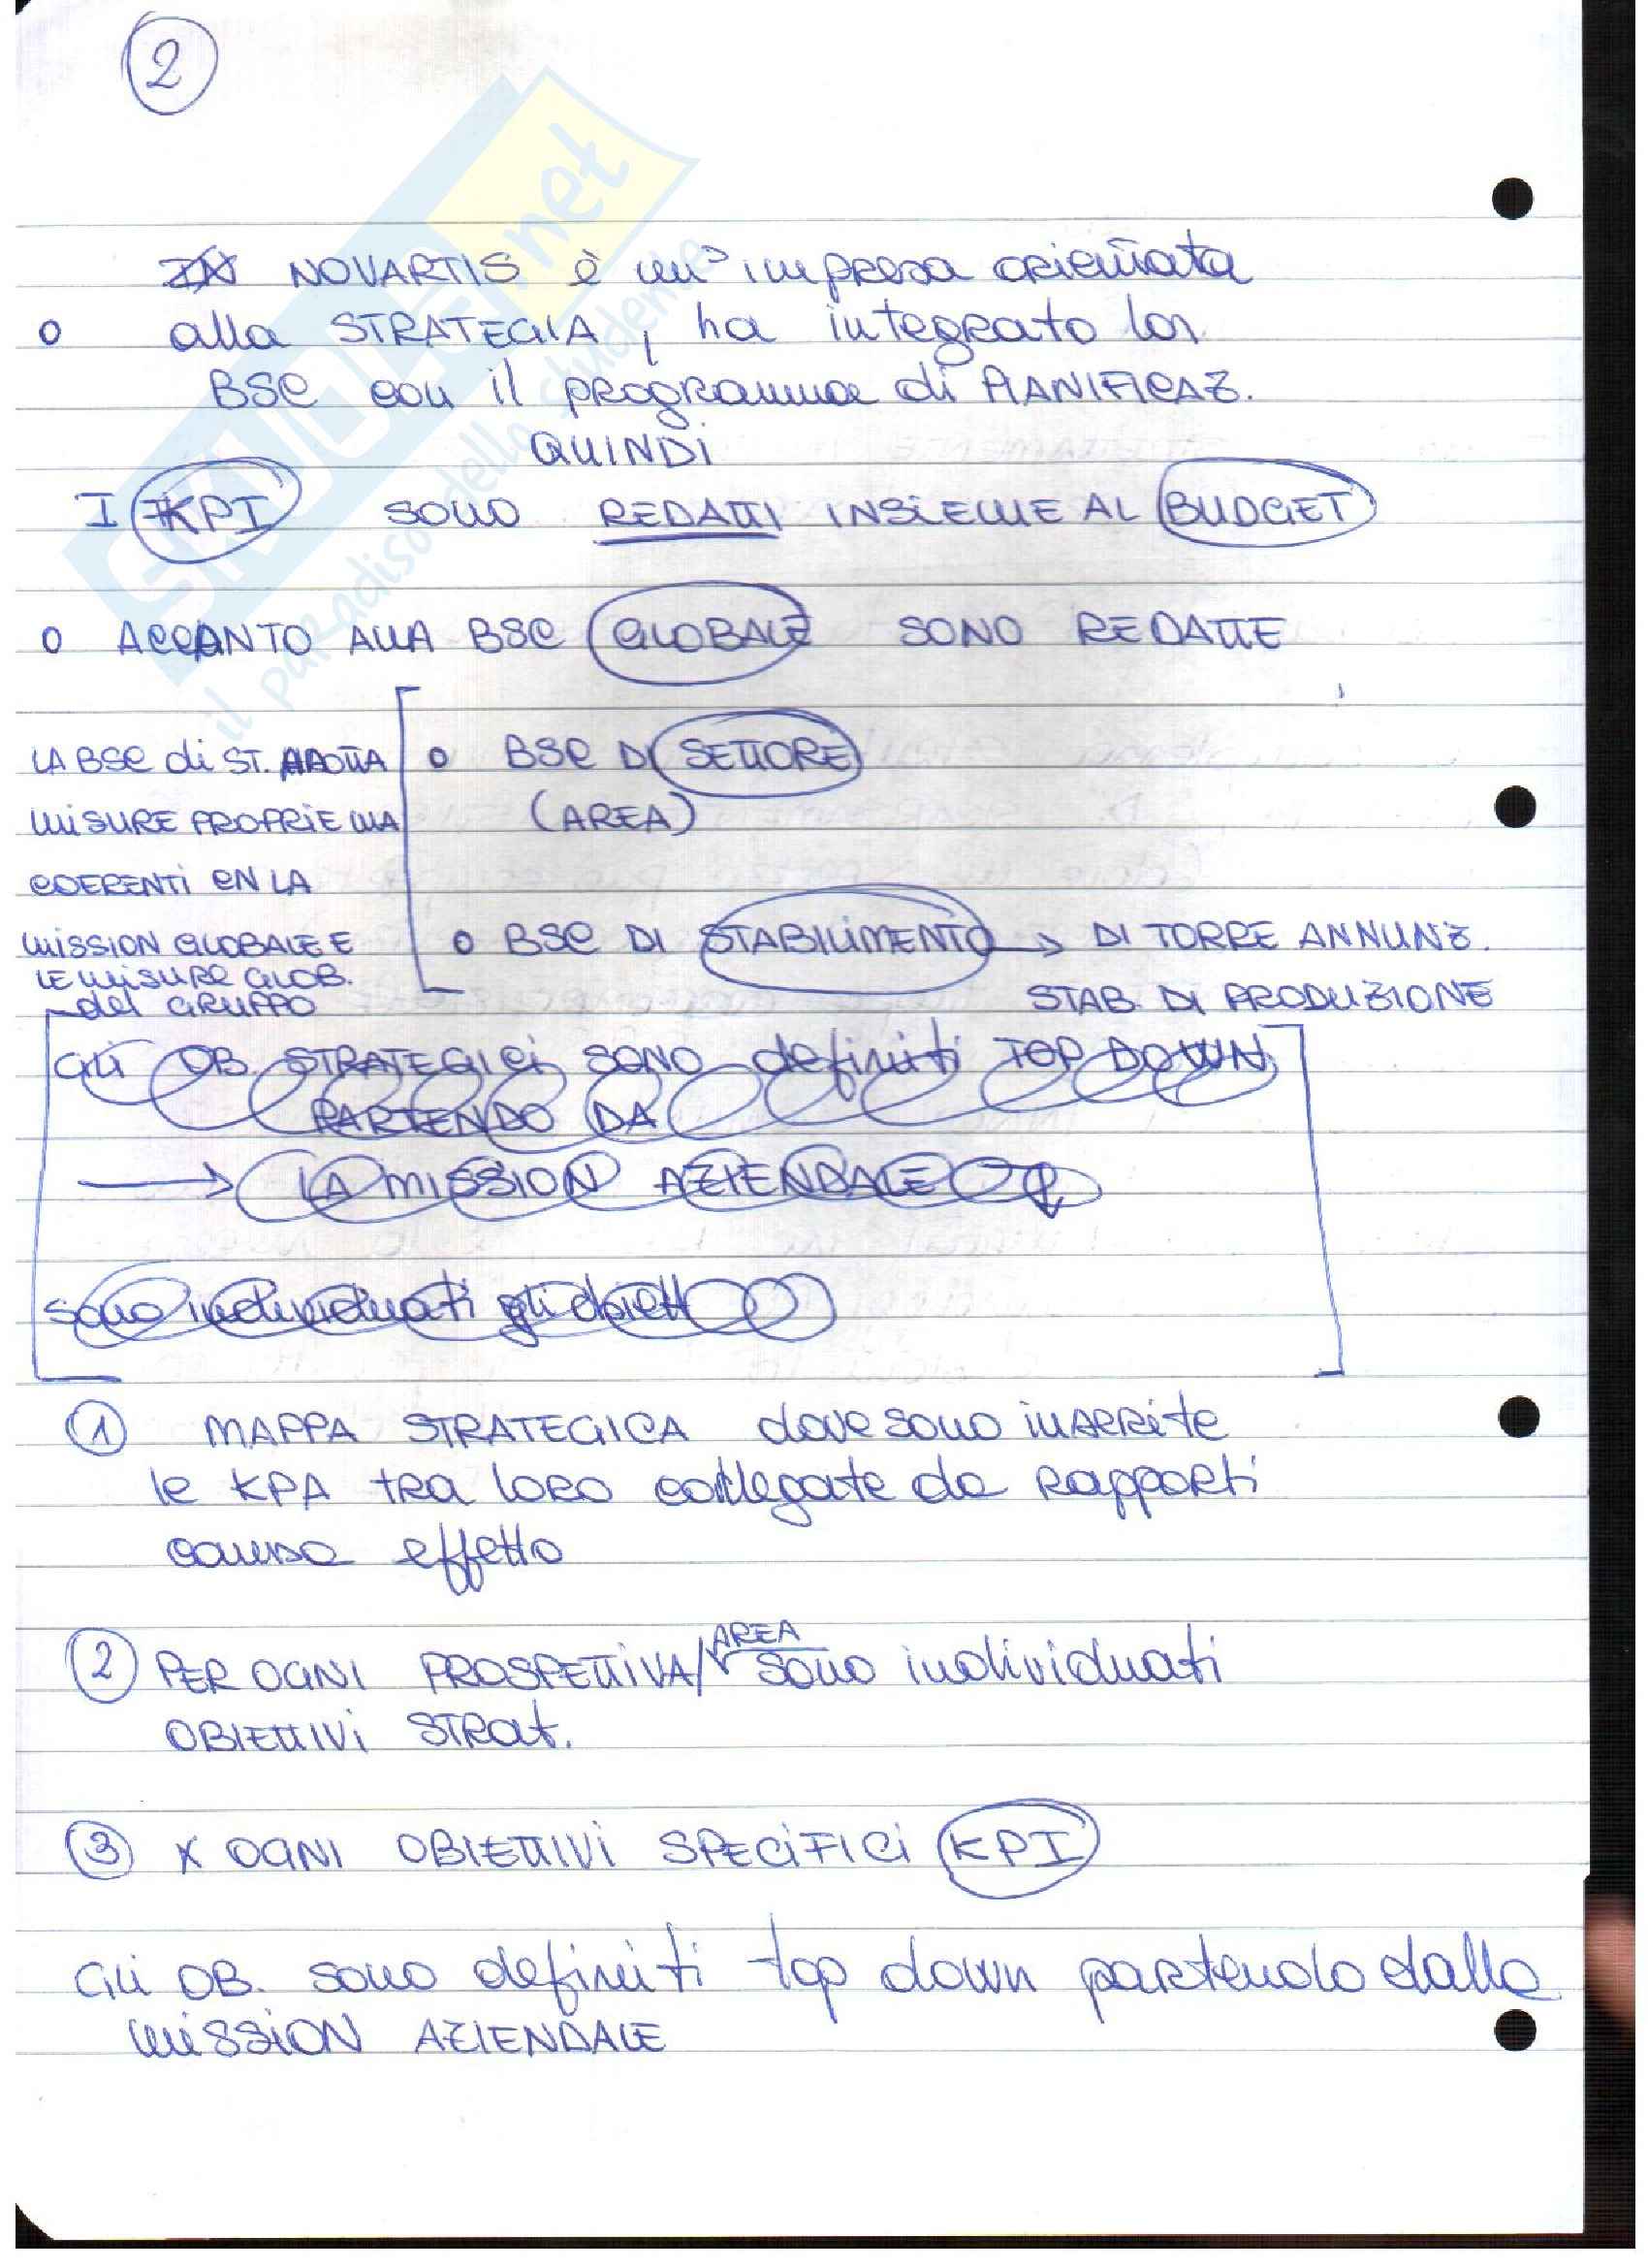 2
NOVARTIS è un' impresa orientata
o alla STRATEGIA, ha integrato la
BSC con il programma di PIANIFICAZ.
QUINDI
I KPI SONO REDATTI INSIEME AL BUDGET
o ACCANTO ALLA BSC GLOBALE SONO REDATTE
LA BSC di ST. ADOTTA
MISURE PROPRIE MA
COERENTI CN LA
MISSION GLOBALE E
LE MISURE GLOB.
del GRUPPO
o BSC DI SETTORE
(AREA)
o BSC DI STABILIMENTO → DI TORRE ANNUNZ.
STAB. DI PRODUZIONE
GLI OB. STRATEGICI SONO definiti TOP DOWN
PARTENDO DA
→ LA MISSION AZIENDALE
sono individuati gli obiett
1 MAPPA STRATEGICA dove sono inserite
le KPA tra loro collegate da rapporti
causa effetto
2 PER OGNI PROSPETTIVA/AREA sono individuati
OBIETTIVI STRAT.
3 X OGNI OBIETTIVI SPECIFICI KPI
GLI OB. sono definiti top down partendo dalla
MISSION AZIENDALE
SKUOLA.net
il paradiso dello studente